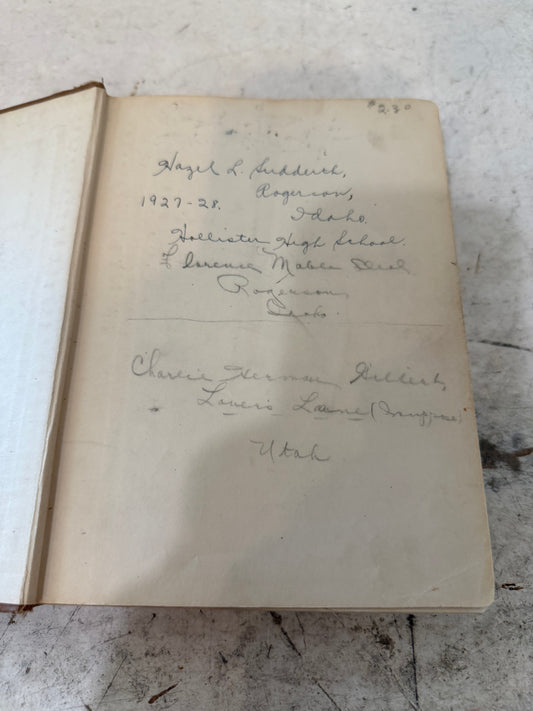 $2.30
Hazel L. Sudderth,
Rogerson,
1927-28. Idaho.
Hollister High School.
Florence Mable
Rogerson,
Idaho.
Charlie Herman Gilbert,
Lover's Lane
Utah